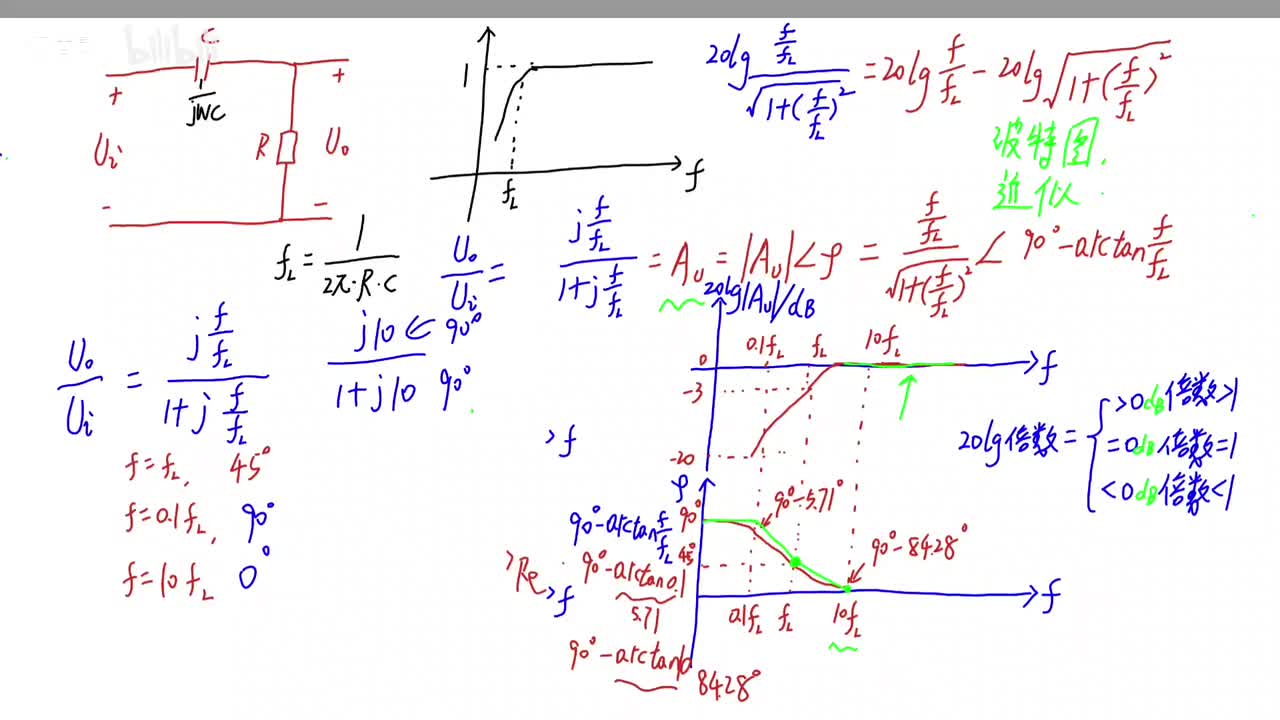 bilibili
C
+ 1/jWC +
Ui R Uo
- -
1
fL f
fL = 1/(2π·R·C)
20lg (f/fL)/√(1+(f/fL)²) = 20lg f/fL - 20lg √(1+(f/fL)²)
波特图.
近似.
Uo/Ui = (j f/fL)/(1+j f/fL) = AU = |AU|∠φ = (f/fL)/√(1+(f/fL)²) ∠ 90°-arctan f/fL
Uo/Ui = (j f/fL)/(1+j f/fL)
j10 ← 90°
1+j10 90°
f=fL, 45°
f=0.1fL, 90°
f=10fL 0°
20lg|AU|/dB
0.1fL fL 10fL
0 f
-3
-20
>f
20lg倍数= { >0dB倍数>1
=0dB倍数=1
<0dB倍数<1
φ
90°-arctan f/fL 90° 90°-5.71°
90°-arctan0.1 45° 90°-84.28°
5.71
>Re >f
0.1fL fL 10fL f
90°-arctan10
84.28°